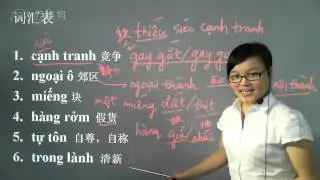 词汇表
1. cạnh tranh 竞争 gay gắt/gay g
thiếu sức cạnh tranh
2. ngoại ô 郊区 ngoại thành nội thành
3. miếng 块 một miếng đất/thịt
4. hàng rởm 假货 hàng giả/nhái
5. tự tôn 自尊，自称
6. trong lành 清新